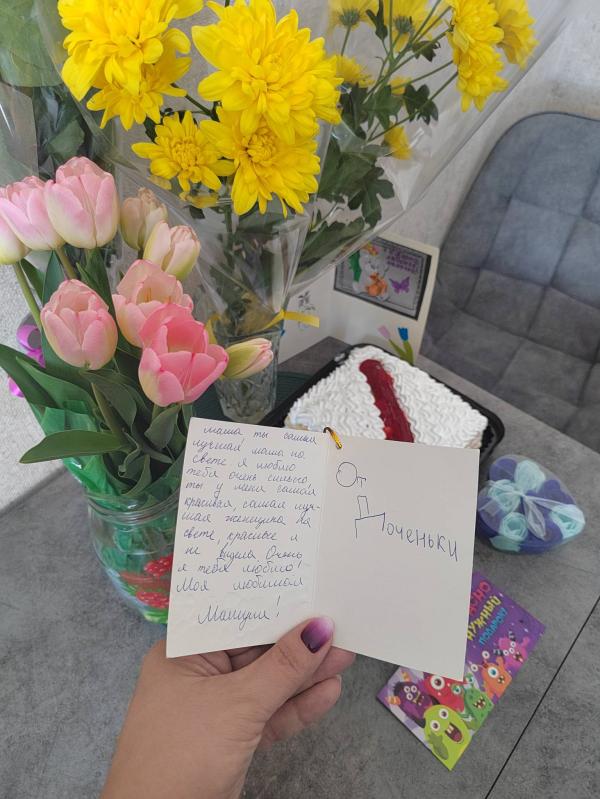 мама ты самая
лучшая мама на
свете я люблю
тебя очень сильно
ты у меня самая
красивая, самая луч-
шая женщина на
свете, красивее я
не видела Очень
я тебя люблю!
Моя любимая
Мамуля!
От
Доченьки